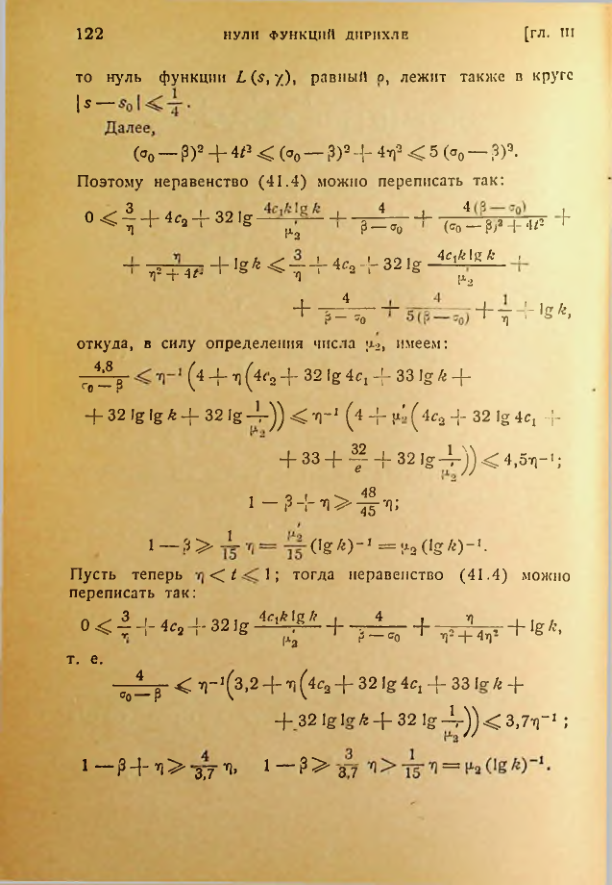 122 НУЛИ ФУНКЦИЙ ДИРИХЛЕ [ГЛ. III
то нуль функции L (s, χ), равный ρ, лежит также в круге
|s — s₀| ⩽ 1/4 .
Далее,
(σ₀ — β)² + 4t² ⩽ (σ₀ — β)² + 4η² ⩽ 5 (σ₀ — β)².
Поэтому неравенство (41.4) можно переписать так:
0 ⩽ 3/η + 4c₂ + 32 lg (4c₁k lg k)/μ₂′ + 4/(β — σ₀) + 4(β — σ₀)/((σ₀ — β)² + 4t²) +
+ η/(η² + 4t²) + lg k ⩽ 3/η + 4c₂ + 32 lg (4c₁k lg k)/μ₂′ +
+ 4/(β — σ₀) + 4/(5(β — σ₀)) + 1/η + lg k,
откуда, в силу определения числа μ₂′, имеем:
4,8/(σ₀ — β) ⩽ η⁻¹ (4 + η (4c₂ + 32 lg 4c₁ + 33 lg k +
+ 32 lg lg k + 32 lg 1/μ₂′)) ⩽ η⁻¹ (4 + μ₂′ (4c₂ + 32 lg 4c₁ +
+ 33 + 32/e + 32 lg 1/μ₂′)) ⩽ 4,5η⁻¹;
1 — β + η ⩾ 48/45 η;
1 — β ⩾ 1/15 η = μ₂′/15 (lg k)⁻¹ = μ₂ (lg k)⁻¹.
Пусть теперь η < t ⩽ 1; тогда неравенство (41.4) можно
переписать так:
0 ⩽ 3/η + 4c₂ + 32 lg (4c₁k lg k)/μ₂′ + 4/(β — σ₀) + η/(η² + 4η²) + lg k,
т. е.
4/(σ₀ — β) ⩽ η⁻¹(3,2 + η (4c₂ + 32 lg 4c₁ + 33 lg k +
+ 32 lg lg k + 32 lg 1/μ₂′)) ⩽ 3,7η⁻¹ ;
1 — β + η ⩾ 4/3,7 η, 1 — β ⩾ 3/3,7 η > 1/15 η = μ₂ (lg k)⁻¹.